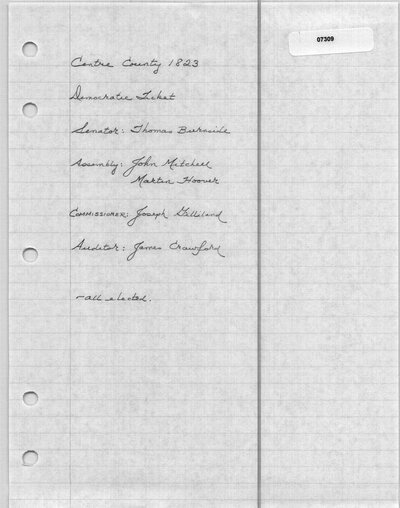 07309
Centre County 1823
Democratic Ticket
Senator: Thomas Burnside
Assembly: John Mitchell
Martin Hoover
COMMISSIONER: Joseph Gilliland
Auditor: James Crawford
- all elected.